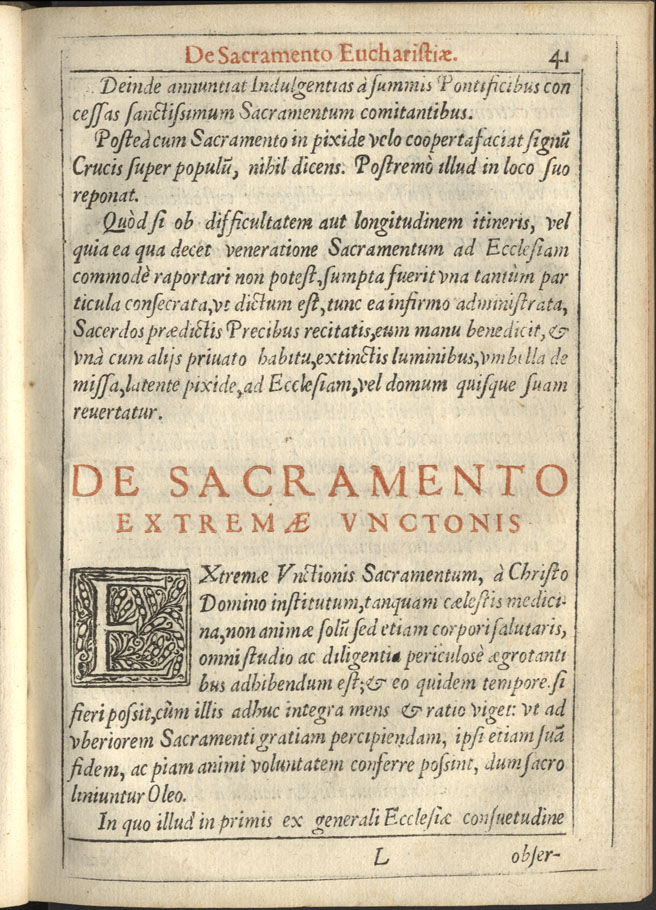 De Sacramento Euchariſtiæ. 41
Deinde annuntiat Indulgentias à ſummis Pontificibus con
ceſſas ſanctiſsimum Sacramentum comitantibus.
Poſteà cum Sacramento in pixide velo cooperta faciat ſignũ
Crucis ſuper populũ, nihil dicens. Poſtremò illud in loco ſuo
reponat.
Quòd ſi ob difficultatem aut longitudinem itineris, vel
quia ea qua decet veneratione Sacramentum ad Eccleſiam
commodè raportari non poteſt, ſumpta fuerit vna tantùm par
ticula conſecrata, vt dictum eſt, tunc ea infirmo adminiſtrata,
Sacerdos prædictis Precibus recitatis, eum manu benedicit, &
vnà cum alijs priuato habitu, extinctis luminibus, vmbella de
miſſa, latente pixide, ad Eccleſiam, vel domum quiſque ſuam
reuertatur.
DE SACRAMENTO
EXTREMÆ VNCTONIS
EXtremæ Vnctionis Sacramentum, à Chriſto
Domino inſtitutum, tanquam cæleſtis medici-
na, non animæ ſolũ ſed etiam corpori ſalutaris,
omni ſtudio ac diligentia periculosè ægrotanti
bus adhibendum eſt; & eo quidem tempore. ſi
fieri poſsit, cùm illis adhuc integra mens & ratio viget: vt ad
vberiorem Sacramenti gratiam percipiendam, ipſi etiam ſuã
fidem, ac piam animi voluntatem conferre poſsint, dum ſacro
liniuntur Oleo.
In quo illud in primis ex generali Eccleſiæ conſuetudine
L obſer-